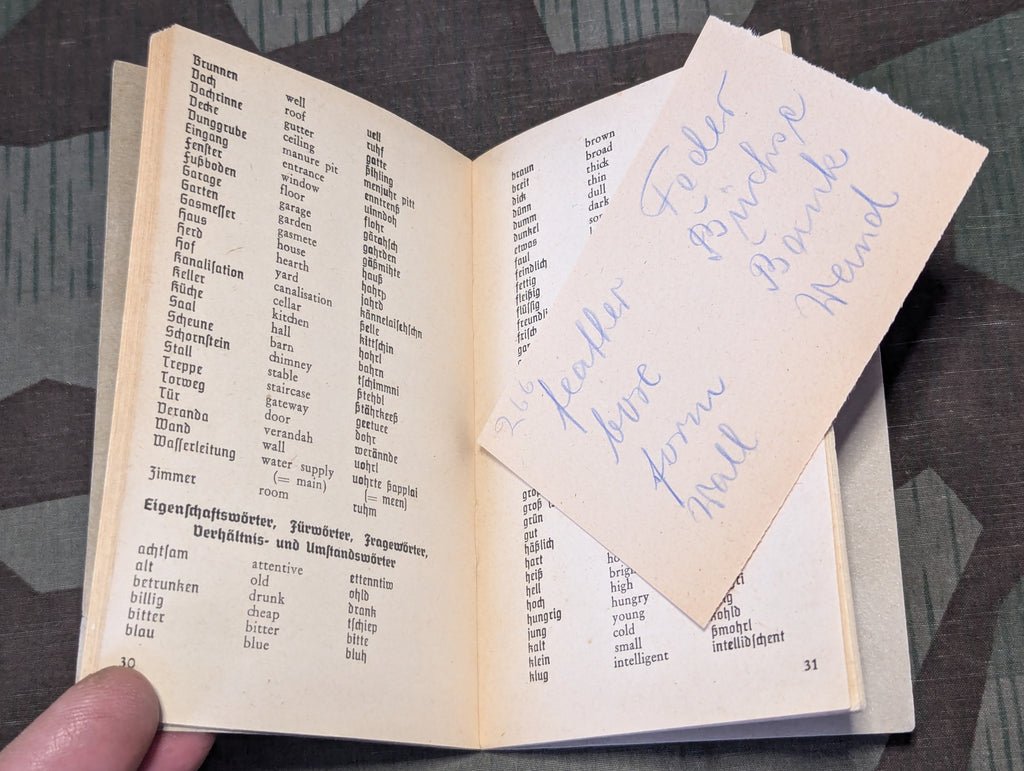 Brunnen well uell
Dach roof ruhf
Dachrinne gutter gatte
Decke ceiling ßihling
Dunggrube manure pit menjuhr pitt
Eingang entrance enntrenß
Fenster window uinndoh
Fußboden floor flohr
Garage garage gärahsch
Garten garden gahrden
Gasmesser gasmete gäßmihte
Haus house hauß
Herd hearth hahrþ
Hof yard jahrd
Kanalisation canalisation kännelaisehschn
Keller cellar ßelle
Küche kitchen kittschin
Saal hall hohrl
Scheune barn bahrn
Schornstein chimney tschimmni
Stall stable ßtehbl
Treppe staircase ßtährkeeß
Torweg gateway geetuee
Tür door dohr
Veranda verandah verännde
Wand wall uohrl
Wasserleitung water supply uohrte ßapplai
(= main) (= meen)
Zimmer room ruhm
Eigenschaftswörter, Fürwörter, Fragewörter,
Verhältnis- und Umstandswörter
achtsam attentive ettenntiw
alt old ohld
betrunken drunk drank
billig cheap tschiep
bitter bitter bitte
blau blue bluh
30
braun brown
breit broad
dick thick
dünn thin
dumm dull
dunkel dark
etwas so
faul
feindlich
fettig
fleißig
flüssig
freundl
frisch
Feder
Büchse
Bank
Wend
266 feather
boxe
form
Wall
groß
grün
gut
häßlich
hart
heiß ho
hell brigh
hoch high
hungrig hungry
jung young
kalt cold
klein small ßmohrl
klug intelligent intellidschent
31